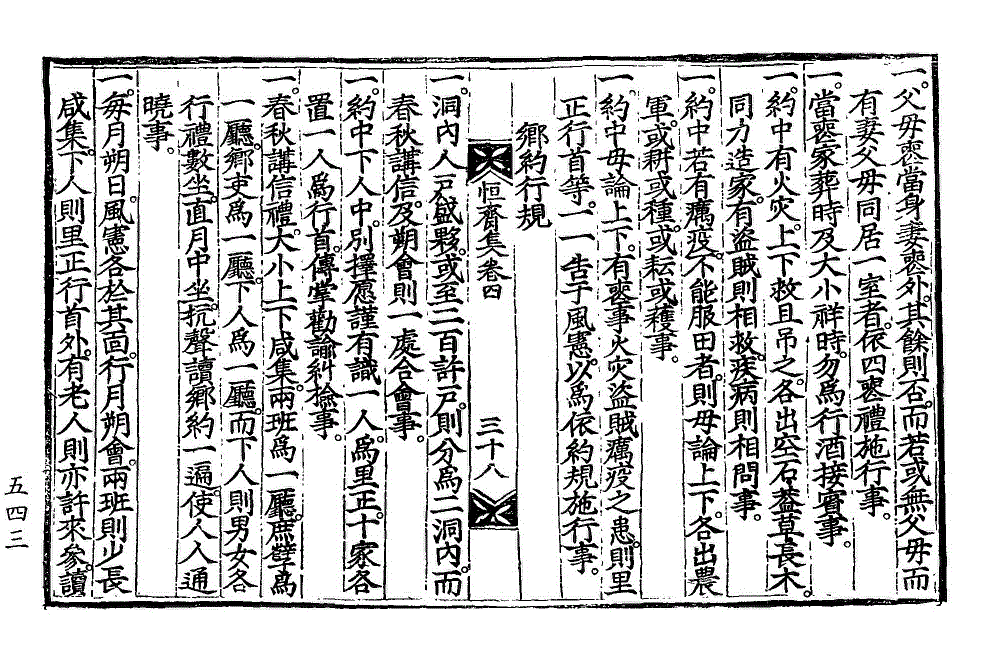 一。父母喪當身妻喪外。其餘則否。而若或無父母而
有妻父母同居一室者。依四喪禮施行事。
一。當喪家葬時及大小祥時。勿爲行酒接賓事。
一。約中有火灾。上下救且吊之。各出空石盖草長木。
同力造家。有盜賊則相救。疾病則相問事。
一。約中若有癘疫。不能服田者。則毋論上下。各出農
軍。或耕或種。或耘或穫事。
一。約中毋論上下。有喪事火灾盜賊癘疫之患。則里
正行首等。一一告于風憲。以爲依約規施行事。
鄕約行規
恒齋集卷四
三十八
一。洞內人戶盛夥。或至二百許戶。則分爲二洞內。而
春秋講信及朔會則一處合會事。
一。約中下人中。別擇愿謹有識一人。爲里正。十家各
置一人爲行首。傳掌勸諭糾撿事。
一。春秋講信禮。大小上下咸集。兩班爲一廳。庶孼爲
一廳。鄕吏爲一廳。下人爲一廳。而下人則男女各
行禮數坐。直月中坐。抗聲讀鄕約一遍。使人人通
曉事。
一。每月朔日。風憲各於其面。行月朔會。兩班則少長
咸集。下人則里正行首外。有老人則亦許來參。讀
五四三